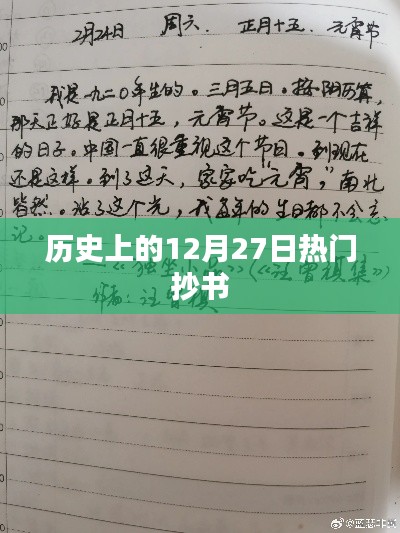 2月24日 周六. 正月十五. 元宵节
我是一九二〇年生的。三月五日。按阴历算,
那天正好是正月十五,元宵节。这是一个吉祥
的日子。中国一直很重视这个节日。到现在
还是这样。到了这天,家家吃“元宵”,南北
皆然。沾了这个光,我每年的生日都不会忘
记。
历史上的12月27日热门
抄书
——《独坐小品》(《汪曾祺集》)
作者:汪曾祺